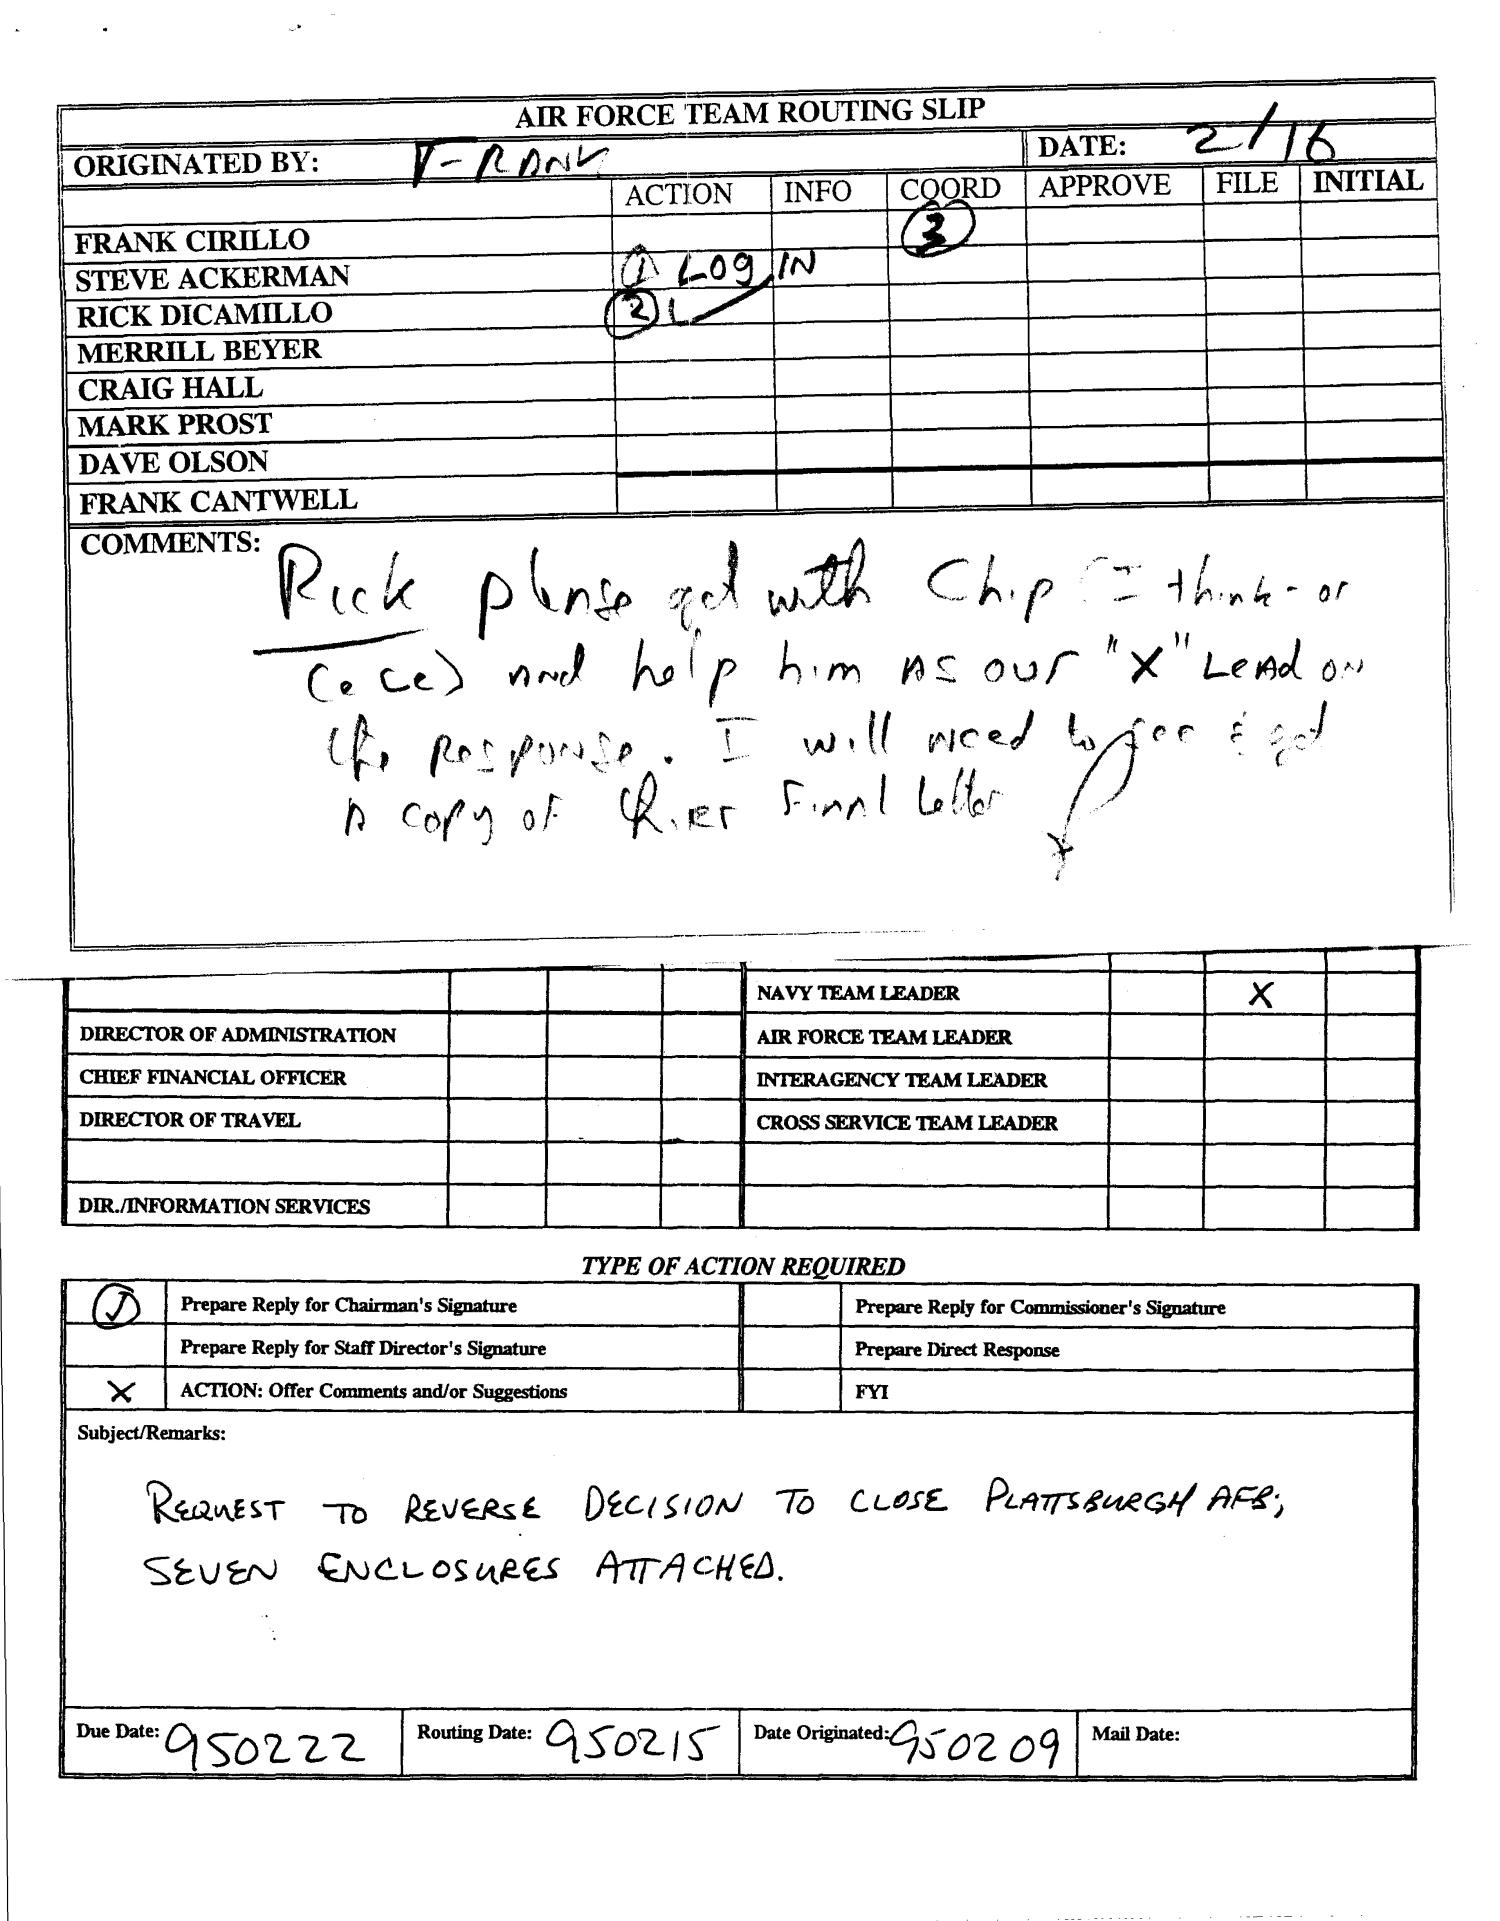 AIR FORCE TEAM ROUTING SLIP
ORIGINATED BY: DATE: 2/16
ACTION INFO COORD APPROVE FILE INITIAL
FRANK CIRILLO 3
STEVE ACKERMAN 1 LOG IN
RICK DICAMILLO 2
MERRILL BEYER
CRAIG HALL
MARK PROST
DAVE OLSON
FRANK CANTWELL
COMMENTS:
Rick please get with Chip (I think - or
CeCe) and help him as our "X" Lead on
the response. I will need to see & get
a copy of their Final Letter
NAVY TEAM LEADER X
DIRECTOR OF ADMINISTRATION AIR FORCE TEAM LEADER
CHIEF FINANCIAL OFFICER INTERAGENCY TEAM LEADER
DIRECTOR OF TRAVEL CROSS SERVICE TEAM LEADER
DIR./INFORMATION SERVICES
TYPE OF ACTION REQUIRED
Prepare Reply for Chairman's Signature Prepare Reply for Commissioner's Signature
Prepare Reply for Staff Director's Signature Prepare Direct Response
X ACTION: Offer Comments and/or Suggestions FYI
Subject/Remarks:
REQUEST TO REVERSE DECISION TO CLOSE PLATTSBURGH AFB;
SEVEN ENCLOSURES ATTACHED.
Due Date: 950222 Routing Date: 950215 Date Originated: 950209 Mail Date: